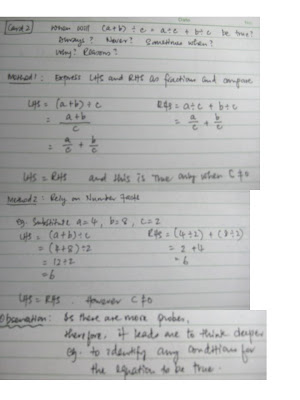 Card 2 When will (a+b) ÷ c = a÷c + b÷c be true?
Always? Never? Sometimes when?
Why? Reasons?
Method 1: Express LHS and RHS as fractions and compare
LHS = (a+b) ÷ c RHS = a÷c + b÷c
= a+b/c = a/c + b/c
= a/c + b/c
LHS = RHS and this is true only when C≠0
Method 2: Rely on Number facts
eg. Substitute a=4, b=8, c=2
LHS = (a+b) ÷ c RHS = (4÷2) + (8÷2)
= (4+8) ÷ 2 = 2 + 4
= 12÷2 = 6
= 6
LHS = RHS. However C≠0
Observation: As there are more probes,
therefore, it leads me to think deeper
eg. to identify any conditions for
the equation to be true.